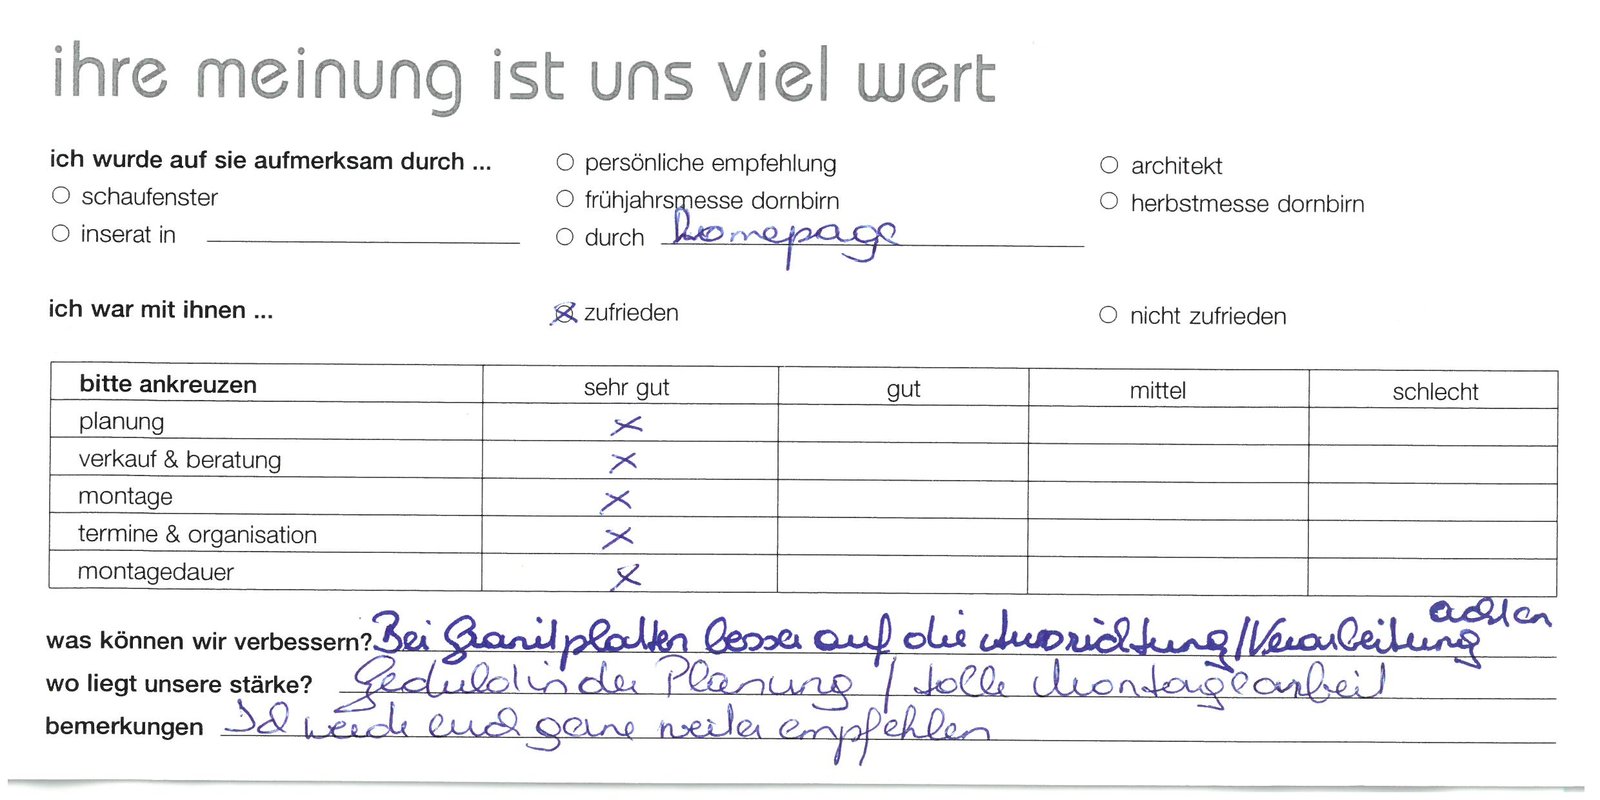 ihre meinung ist uns viel wert
ich wurde auf sie aufmerksam durch ...
○ persönliche empfehlung
○ architekt
○ schaufenster
○ frühjahrsmesse dornbirn
○ herbstmesse dornbirn
○ inserat in
○ durch homepage
ich war mit ihnen ...
☒ zufrieden
○ nicht zufrieden
bitte ankreuzen sehr gut gut mittel schlecht
planung x
verkauf & beratung x
montage x
termine & organisation x
montagedauer x
was können wir verbessern? Bei Granitplatten besser auf die Ausrichtung/Verarbeitung achten
wo liegt unsere stärke? Geduld in der Planung / tolle Montagearbeit
bemerkungen Ich werde euch gerne weiter empfehlen